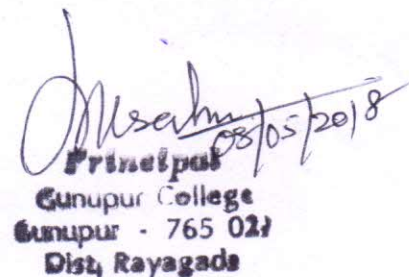 08/05/2018
Principal
Gunupur College
Gunupur - 765 022
Dist, Rayagada